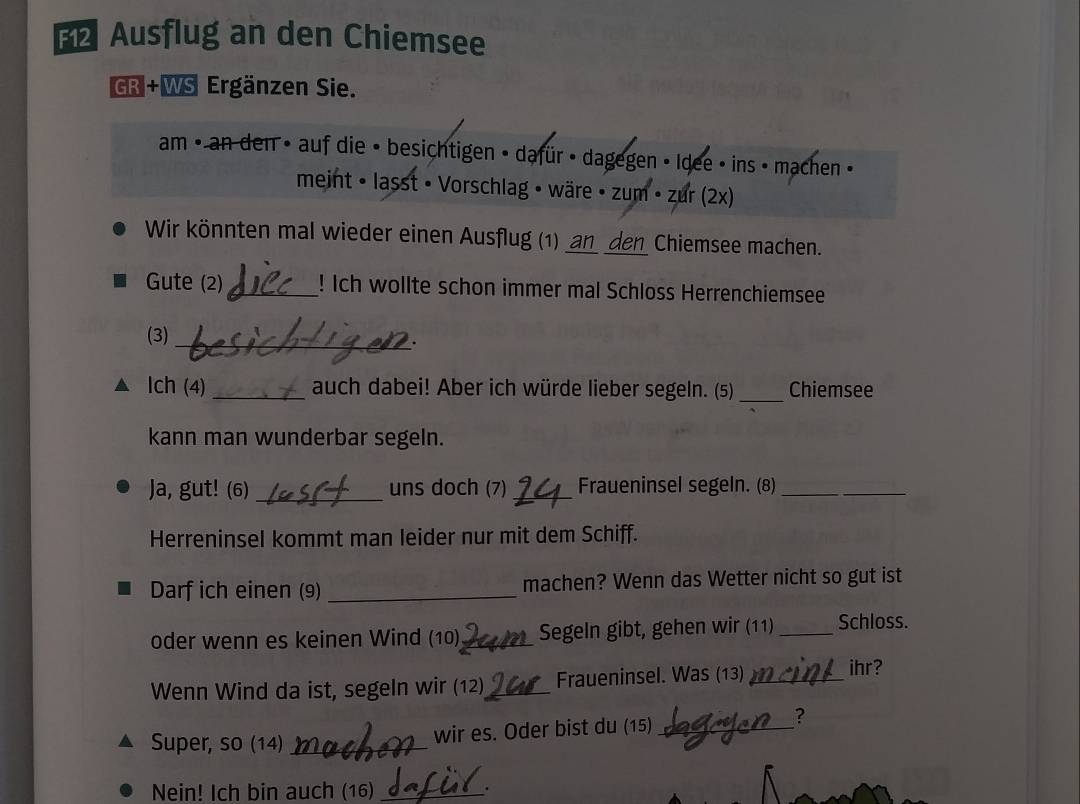 F12 Ausflug an den Chiemsee
GR+WS Ergänzen Sie.
am • an den • auf die • besichtigen • dafür • dagegen • Idee • ins • machen •
meint • lasst • Vorschlag • wäre • zum • zur (2x)
● Wir könnten mal wieder einen Ausflug (1) an den Chiemsee machen.
■ Gute (2) ! Ich wollte schon immer mal Schloss Herrenchiemsee
(3) besichtigen.
▲ Ich (4) lasst auch dabei! Aber ich würde lieber segeln. (5) ____ Chiemsee
kann man wunderbar segeln.
● Ja, gut! (6) lasst uns doch (7) Fraueninsel segeln. (8) _____ _____
Herreninsel kommt man leider nur mit dem Schiff.
■ Darf ich einen (9) ________ machen? Wenn das Wetter nicht so gut ist
oder wenn es keinen Wind (10) zum Segeln gibt, gehen wir (11) _____ Schloss.
Wenn Wind da ist, segeln wir (12) zur Fraueninsel. Was (13) meint ihr?
▲ Super, so (14) machen wir es. Oder bist du (15) dagegen?
● Nein! Ich bin auch (16) dafür.